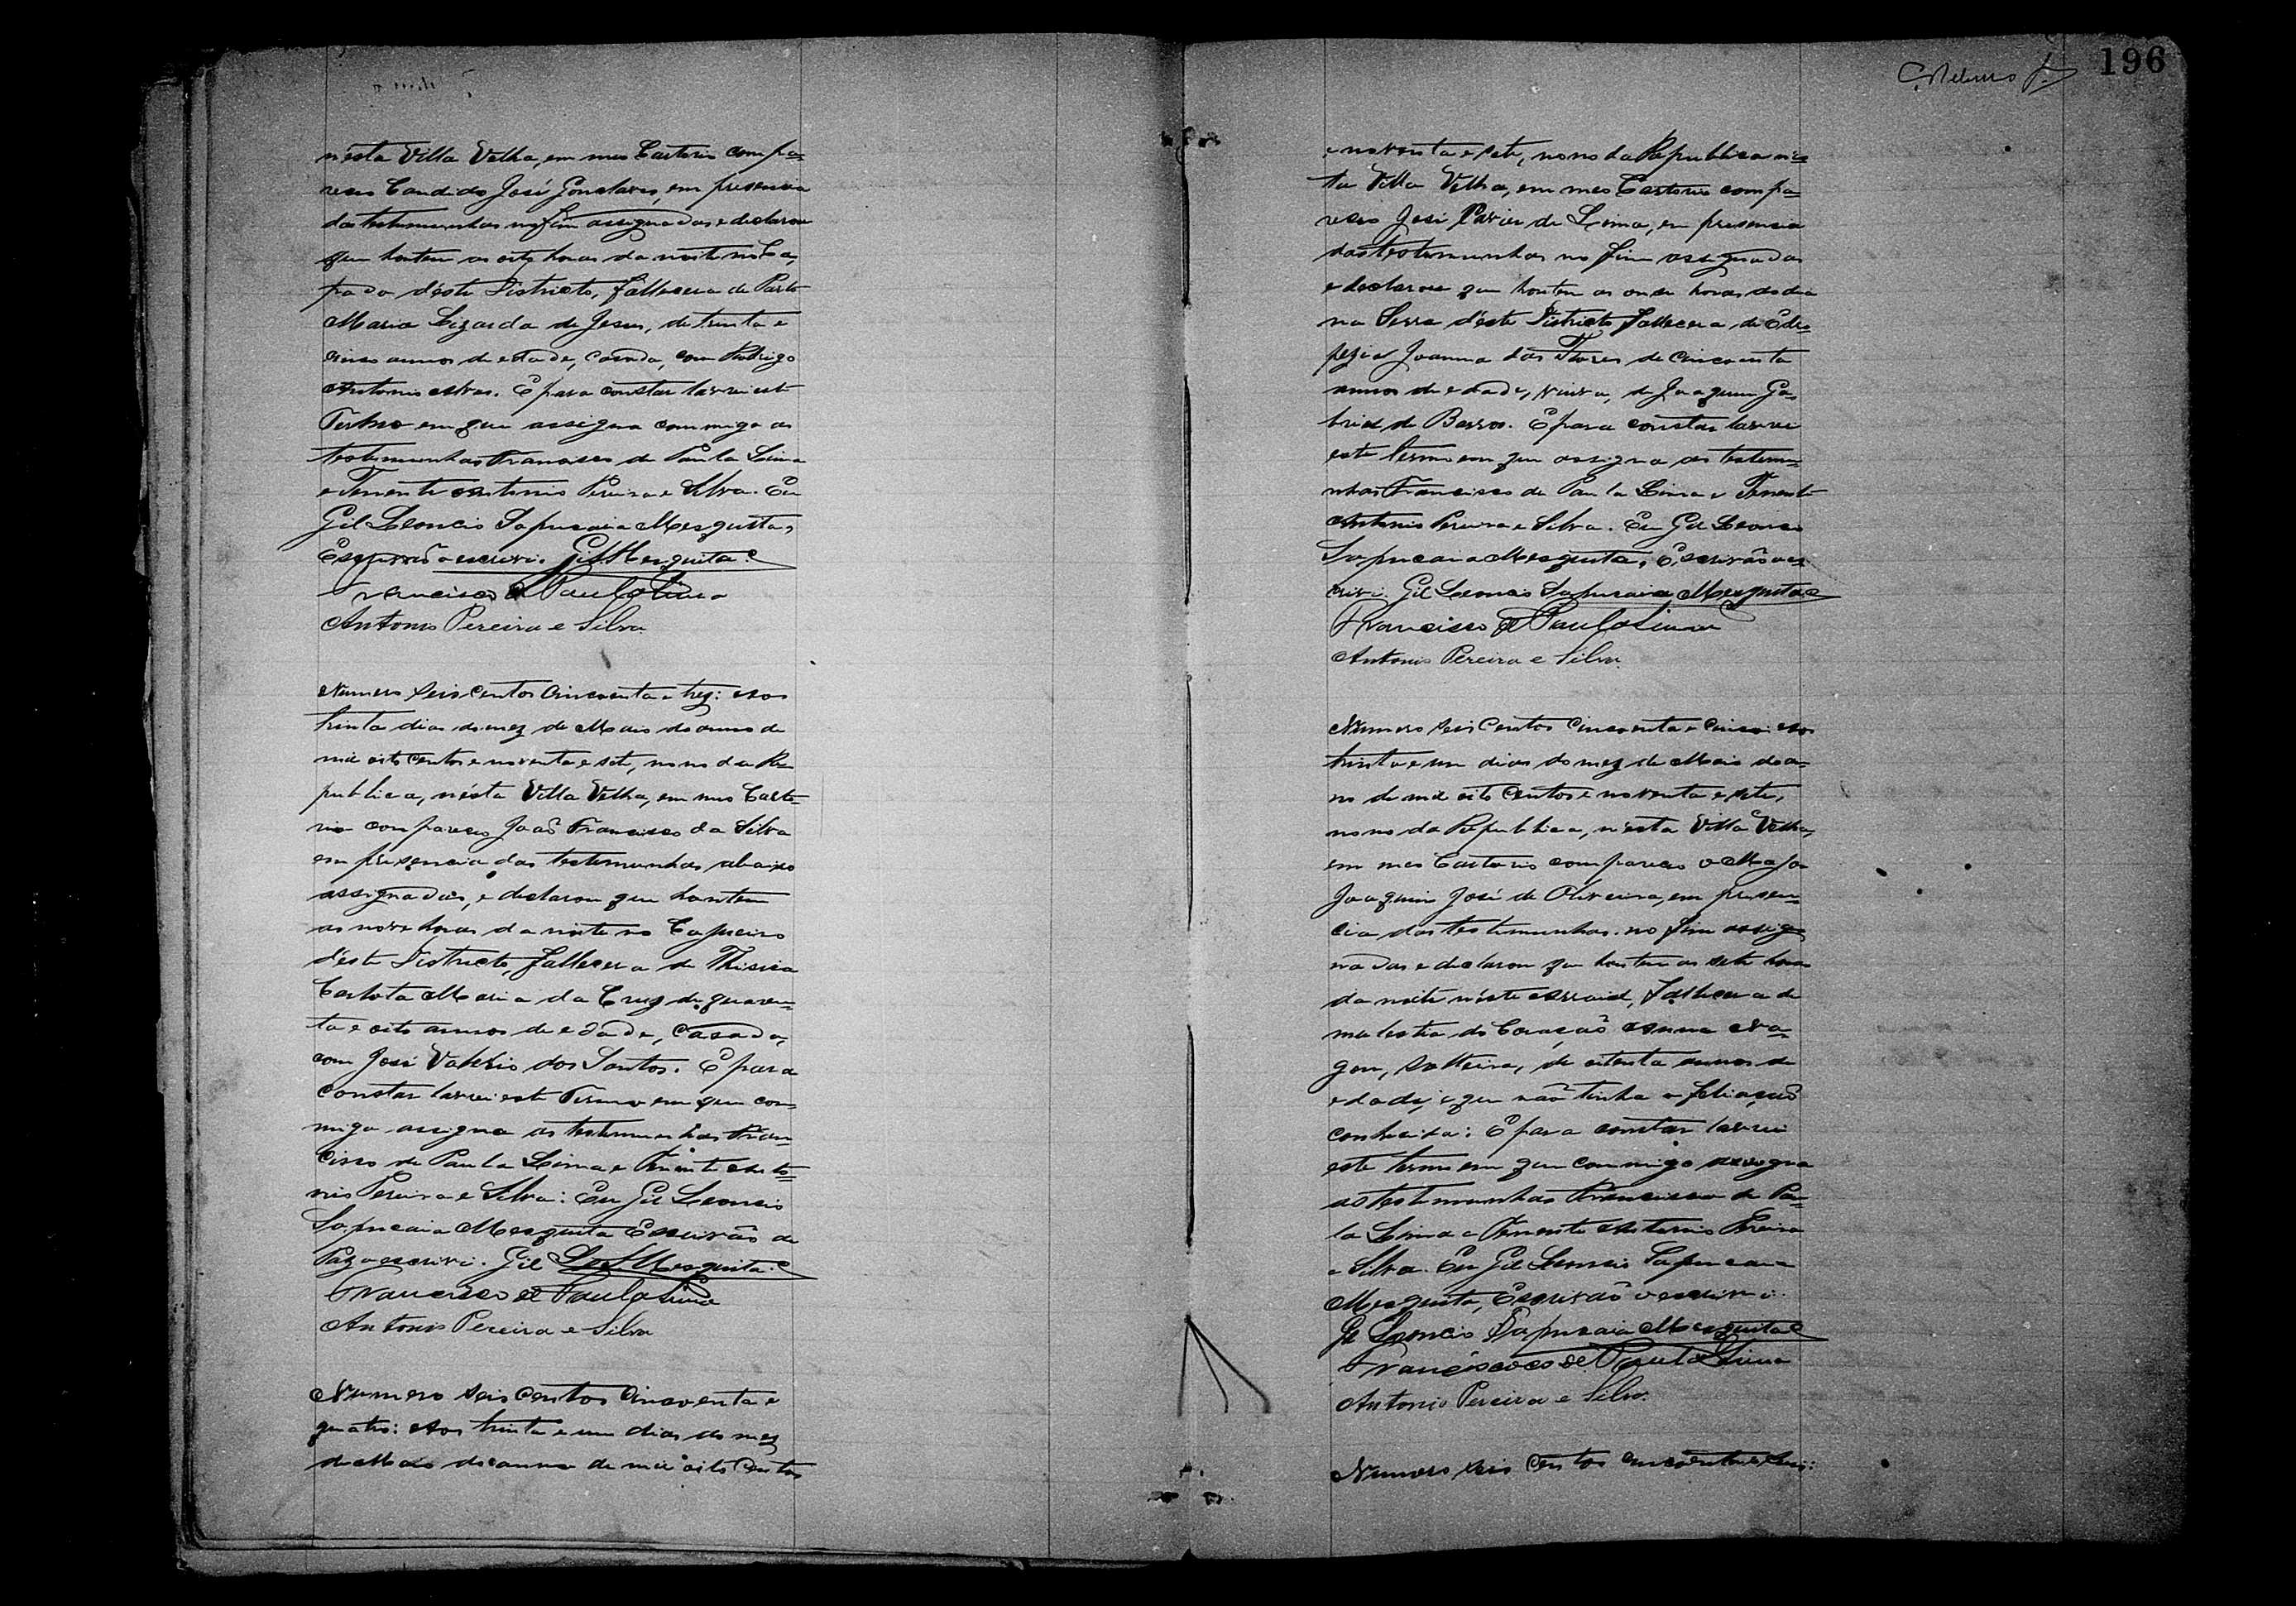 nésta Villa Velha, em meo Cartorio compa=
receo Candido José Gonçalves, em presencia
das testemunhas no fim assignadas e declarou
que hontem as oito horas da noite no Ca,
pado déste Districto, fallecera de Parto
Maria Lizarda de Jesus, de trinta e
cinco annos de edade, Casada, com Rodrigo
Antonio Alves. E para constar lavrei este
Termo em que assigna commigo as
testemunhas Francisco de Paula Lima
e Tenente Antonio Pereira e Silva. Eu
Gil Leoncio Sapucaia Mesquita,
Escrivão o escrevi. Gil Mesquita
Francisco de Paula Lima
Antonio Pereira e Silva
Numero seis centos cincoenta e trez: Aos
trinta dias do mez de Maio do anno de
mil oito centos e noventa e sete, nono da Re
publica, nésta Villa Velha, em meo Carto=
rio compareceo João Francisco da Silva
em presencia das testemunhas abaixo
assignadas, e declarou que hontem
as nove horas da noite no Capueiro
déste Districto, fallecera de Thisica
Carlota Maria da Cruz de quaren=
ta e oito annos de edade, Casada,
com José Valerio dos Santos. E para
constar lavrei este Termo em que com=
migo assigna as testemunhas Fran=
cisco de Paula Lima e Tenente Anto=
nio Pereira e Silva: Eu Gil Leoncio
Sapucaia Mesquita Escrivão de
Paz o escrevi. Gil L. S. Mesquita
Francisco de Paula Lima
Antonio Pereira e Silva
Numero seis centos cincoenta e
quatro: Aos trinta e um dias do mez
de Maio do anno de mil oito Centos
196
e noventa e sete, nono da Republica nés=
ta Villa Velha, em meo Cartorio compa=
receo José Xavier de Lima, em presencia
das testemunhas no fim assignadas
e declarou que hontem as onze horas do dia
na Serra déste Districto fallecera de Edro=
pezia Joanna das Flores de cincoenta
annos de edade, viuva, de Joaquim Ga=
briel de Barros. E para constar lavrei
este termo em que assigna as testemu=
nhas Francisco de Paula Lima e Tenente
Antonio Pereira e Silva. Eu Gil Leoncio
Sapucaia Mesquita, Escrivão o es=
crivi. Gil Leoncio Sapucaia Mesquita
Francisco de Paula Lima
Antonio Pereira e Silva
Numero seis Centos Cincoenta e Cinco: Aos
trinta e um dias do mez de Maio do an=
no de mil oito Centos e noventa e sete,
nono da Republica, nésta Villa Velha,
em meo Cartorio compareceo o Major
Joaquim José de Oliveira, em presen=
cia das testemunhas no fim assig=
nadas e declarou que hontem as sete horas
da noite néste Arraial, fallecera de
molestia do Coração
gou, solteira, de oitenta annos de
edade, e que não tinha a filiação
conhecida: E para constar lavrei
este termo em que commigo assigna
as testemunhas Francisco de Pau=
la Lima e Tenente Antonio Pereira
e Silva. Eu Gil Leoncio Sapucaia
Mesquita, Escrivão o escrivi.
Gil Leoncio Sapucaia Mesquita
Francisco de Paula Lima
Antonio Pereira e Silva
Numero seis Centos cincoenta e seis: